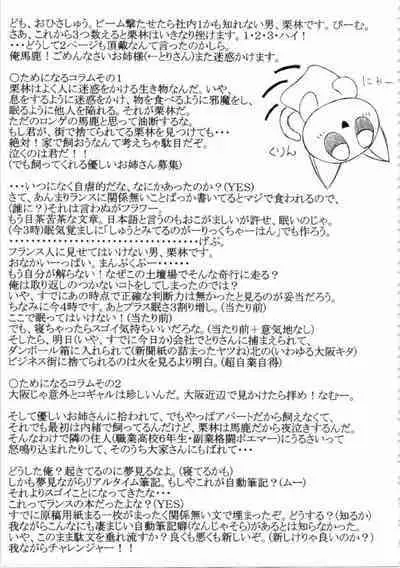 ども、おひさしゅう。ビーム撃たせたら社内1かも知れない男、栗林です。びーむ。
さあ、これから3つ数えると栗林はいきなり挫けます。1・2・3・ハイ！
・・・どうして2ページも頂戴なんて言ったのかしら。
俺馬鹿！ごめんなさいお姉様(←とりさん)また迷惑かけます。
○ためになるコラムその1
栗林はよく人に迷惑をかける生き物なんだ。いや、
息をするように迷惑をかけ、物を食べるように邪魔をし、
眠るように他人を陥れる。それが栗林だ。
ただのロンゲの馬鹿と思って油断するな。
もし君が、街で捨てられてる栗林を見つけても・・・
絶対！家で飼おうなんて考えちゃ駄目だぞ。
泣くのは君だ！！
(でも飼ってくれる優しいお姉さん募集)
にゃー
くりん
・・・いつになく自虐的だな、なにかあったのか？(YES)
さて、あんまりランスに関係無いことばっか書いてるとマジで食われるので、
(誰に？)それは言わぬがフラワー。
もう目茶苦茶な文章。日本語と言うのもおこがましいが許せ、眠いのじゃ。
(今3時)眠気覚ましに「しゅうとみてるのがーりっくちゃーはん」でも作ろう。
・・・・・・・・・・・・・・・・・・・・・・・・・・・げぷ。
フランス人に見せてはいけない男、栗林です。
おなかいーっぱい。まんぷくぷー・・・・・・
もう自分が解らない！なぜこの土壇場でそんな奇行に走る？
俺は取り返しのつかないコトをしてしまったのでは？
いや、すでにあの時点で正確な判断力は無かったと見るのが妥当だろう。
ちなみに今4時です。あとプラス眠さ3割り増し。(当たり前)
ここで眠ってはいけない！(当たり前)
でも、寝ちゃったらスゴイ気持ちいいだろな。(当たり前＋意気地なし)
そしたら、明日(いや、すでに今日か)会社でとりさんに捕まえられて、
ダンボール箱に入れられて(新聞紙の詰まったヤツね)北の(いわゆる大阪キタ)
ビジネス街に捨てられるのは火を見るより明白。(超自業自得)
○ためになるコラムその2
大阪じゃ意外とコギャルは珍しいんだ。大阪近辺で見かけたら拝め！なむー。
そして優しいお姉さんに拾われて、でもやっぱアパートだから飼えなくて、
それでも最初は内緒で飼ってるんだけど、栗林は馬鹿だから夜泣きするんだ。
そんなわけで隣の住人(職業高校6年生・副業格闘ポエマー)にうるさいって
怒鳴り込まれたりして、そのうち大家さんにもばれて・・・
どうした俺？起きてるのに夢見るなよ。(寝てるかも)
しかも夢見ながらリアルタイム筆記。もしやこれが自動筆記？(ムー)
それよりスゴイことになってきたな・・・
これってランスの本だったよな？(YES)
すでに原稿用紙まる一枚がまったく関係無い文で埋まったぞ。どうする？(知るか)
我ながらこんなにも凄まじい自動筆記癖(なんじゃそら)があるとは知らなかった。
いや、このまま駄文を垂れ流すか？良くも悪くも新しいぞ。(新しけりゃ良いのか？)
我ながらチャレンジャー！！